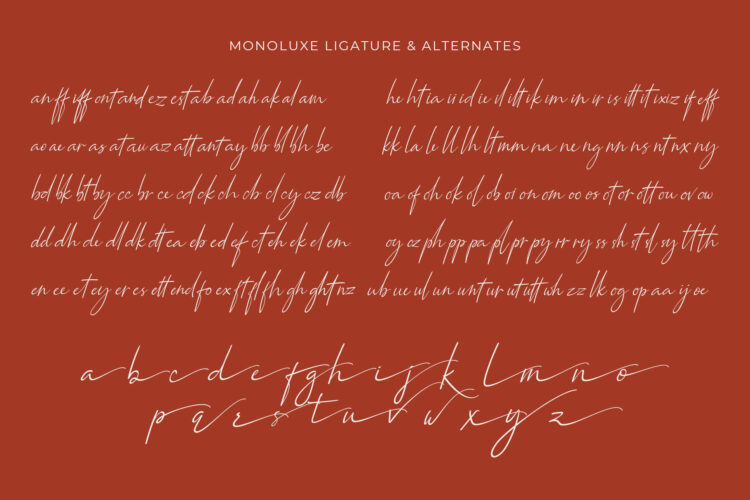 MONOLUXE LIGATURE & ALTERNATES
an ff iff ont and ez est ab ad ah ak al am
he ht ia ii id ie il ilt ik im in ir is itt it ixiz if eff
ao ae ar as at au az att ant ay bb bl bh be
kk la le ll lh lt mm na ne ng nn ns nt nx ny
bd bk bt by cc br ce cd ck ch cb cl cy cz db
oa of oh ok ol ob oi on om oo os ot or ott ou ov ow
dd dh de dl dk dt ea eb ed ef ct eh ek el em
oy cz ph pp pa pl pr py rr ry ss sh st sl sy tt th
en ee et ey er es ett end fo ex ft fl fh gh ght nz
ub ue ul un unt ur ut utt wh zz lk og op aa ij oe
a b c d e f g h i j k l m n o
p q r s t u v w x y z